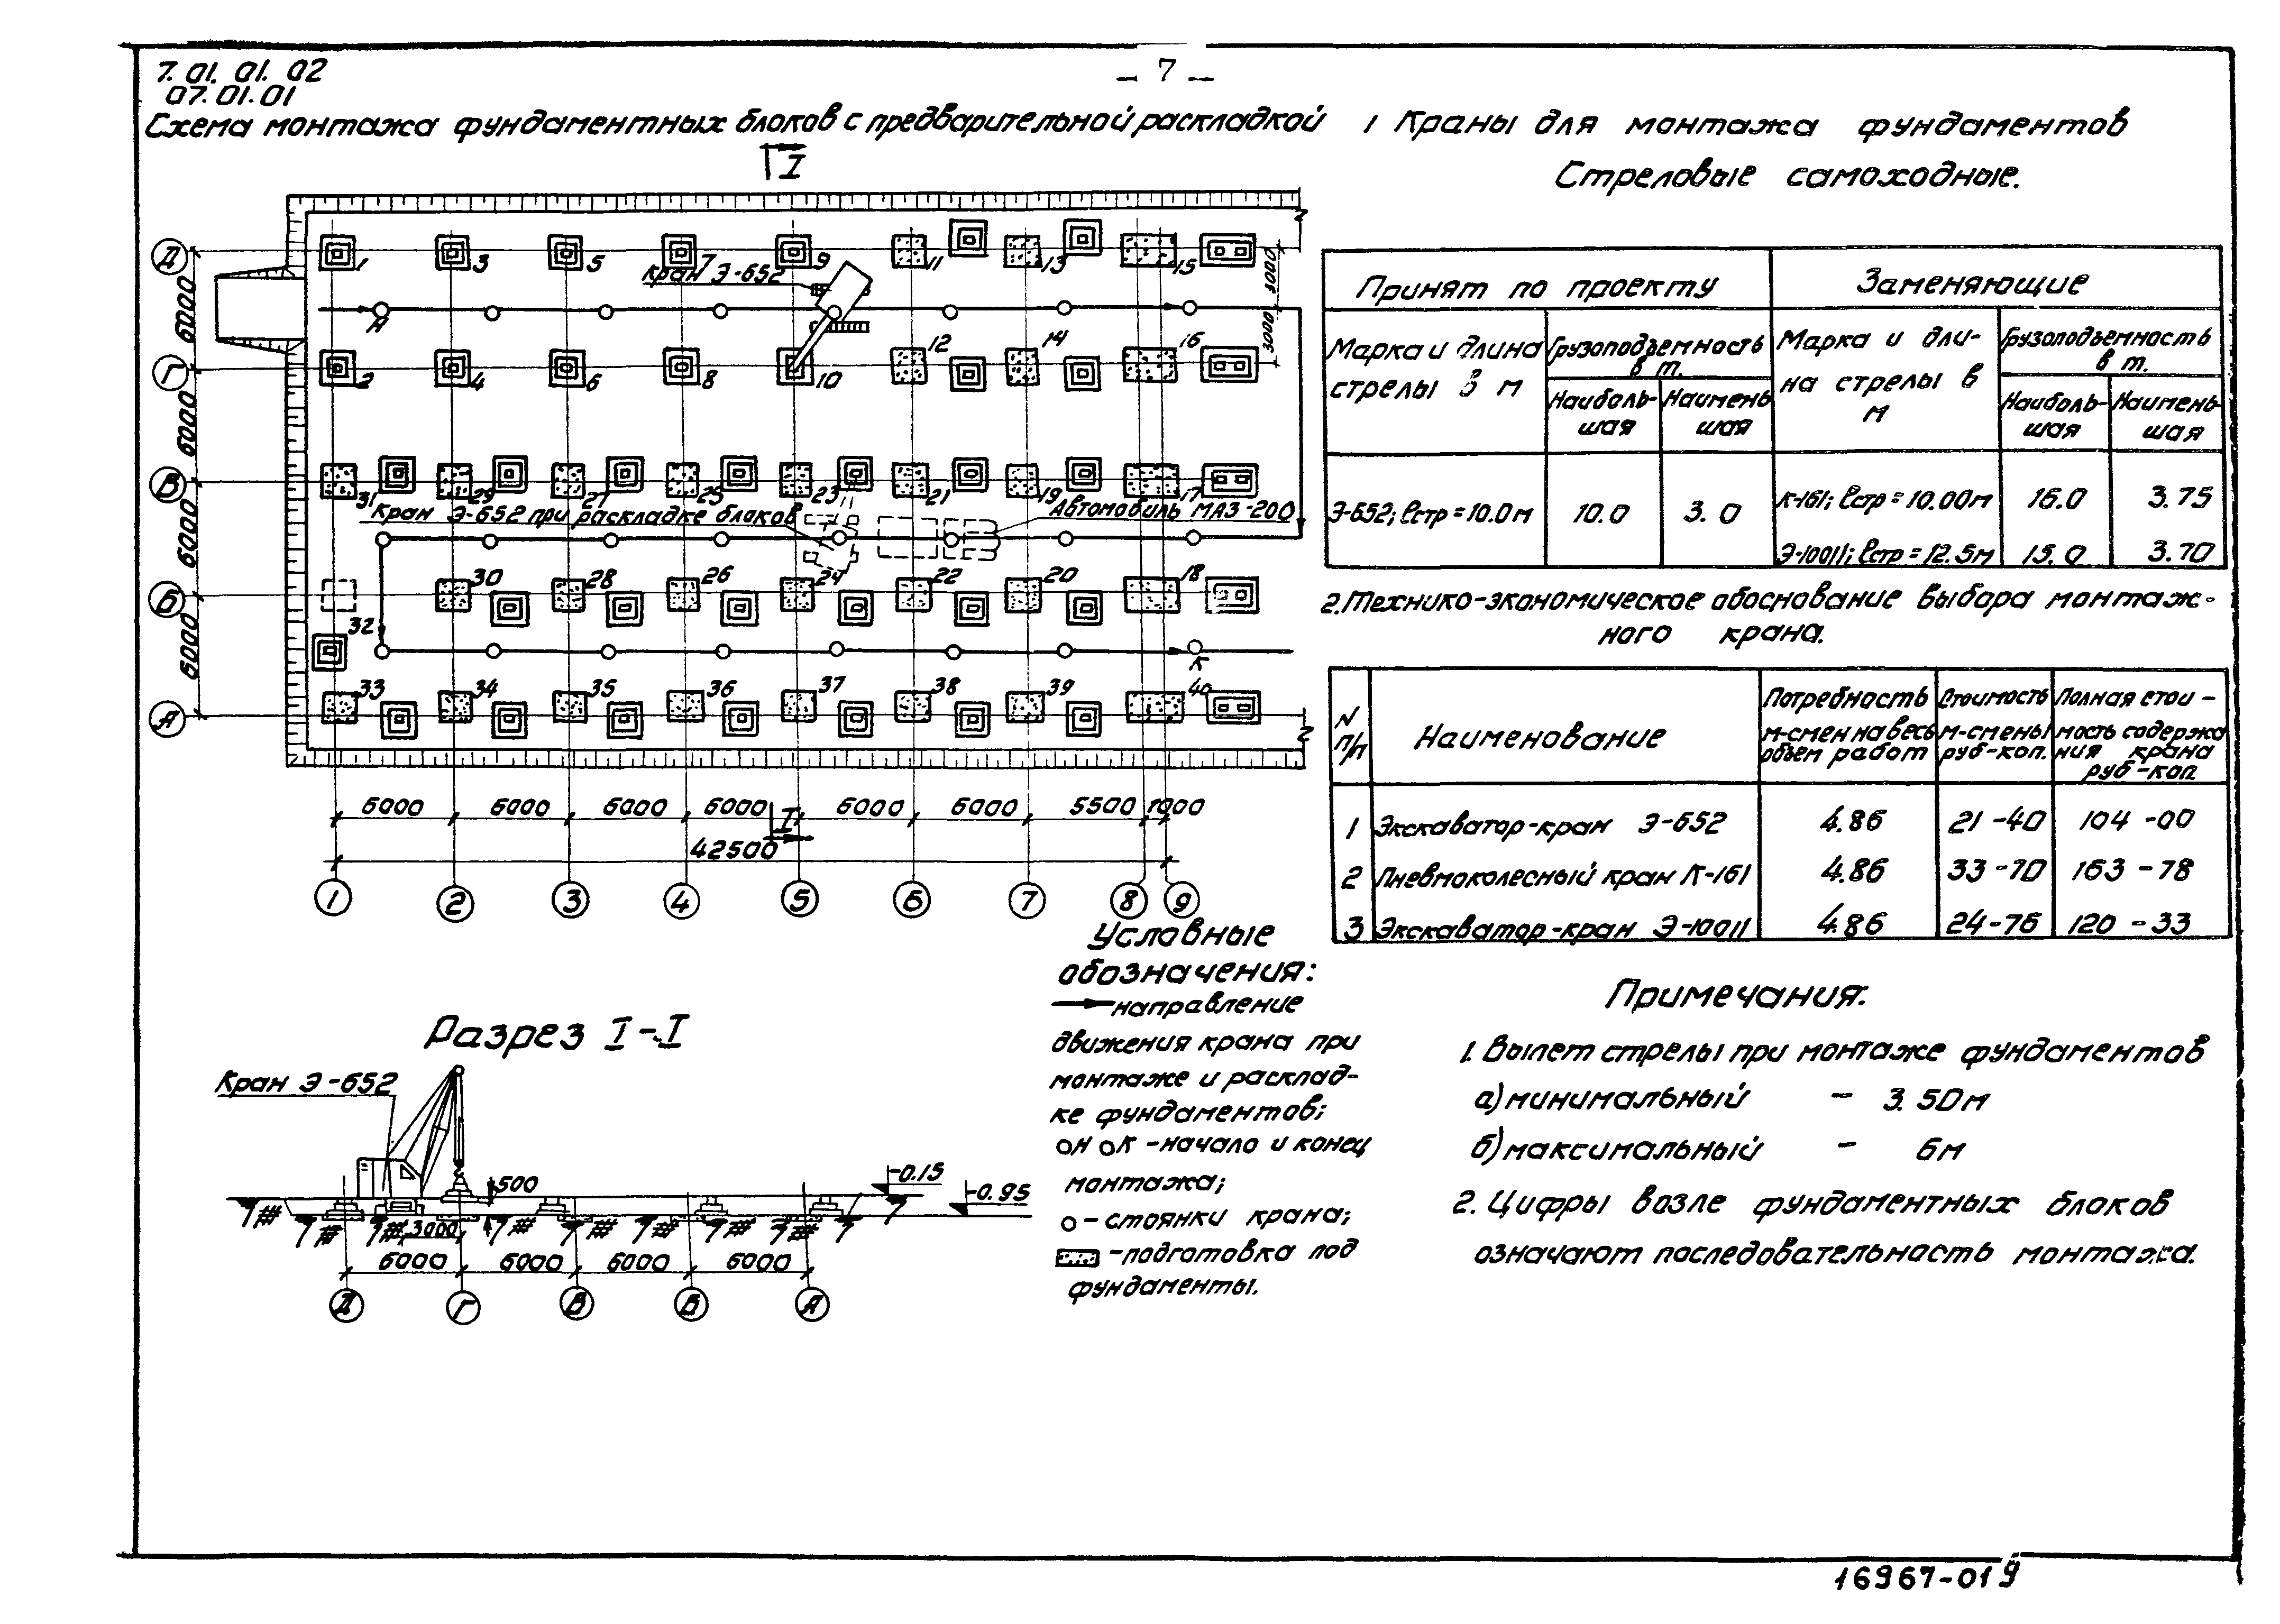 7.01.01.02
07.01.01
– 7 –
Схема монтажа фундаментных блоков с предварительной раскладкой
I
Д
Г
В
Б
А
6000
6000
6000
6000
3000
3000
1
3
5
7
9
11
13
15
Кран Э-652
Н
2
4
6
8
10
12
14
16
31
29
27
25
23
21
19
17
Кран Э-652 при раскладке блоков
Автомобиль МАЗ-200
30
28
26
24
22
20
18
32
К
33
34
35
36
37
38
39
40
6000
6000
6000
6000
6000
6000
5500
1000
I
42500
1
2
3
4
5
6
7
8
9
Разрез I-I
Кран Э-652
500
-0.15
-0.95
3000
6000
6000
6000
6000
Д
Г
В
Б
А
Условные
обозначения:
направление
движения крана при
монтаже и расклад-
ке фундаментов;
Н К -начало и конец
монтажа;
- стоянки крана;
-подготовка под
фундаменты.
1 Краны для монтажа фундаментов
Стреловые самоходные.
Принят по проекту
Заменяющие
Марка и длина
стрелы в м
Грузоподъемность
в т.
Наиболь-
шая
Наимень
шая
Марка и дли-
на стрелы в
м
Грузоподъемность
в т.
Наиболь-
шая
Наимень-
шая
Э-652; ℓстр = 10.0м
10.0
3.0
К-161; ℓстр = 10.00м
16.0
3.75
Э-10011; ℓстр = 12.5м
15.0
3.70
2. Технико-экономическое обоснование выбора монтаж-
ного крана.
N
п/п
Наименование
Потребность
м-смен на весь
объем работ
Стоимость
м-смены
руб-коп.
Полная стои-
мость содержа
ния крана
руб-коп
1 Экскаватор-кран Э-652 4.86 21-40 104-00
2 Пневмоколесный кран К-161 4.86 33-70 163-78
3 Экскаватор-кран Э-10011 4.86 24-76 120-33
Примечания:
1. Вылет стрелы при монтаже фундаментов
а) минимальный – 3.50м
б) максимальный – 6м
2. Цифры возле фундаментных блоков
означают последовательность монтажа.
16967-01 9